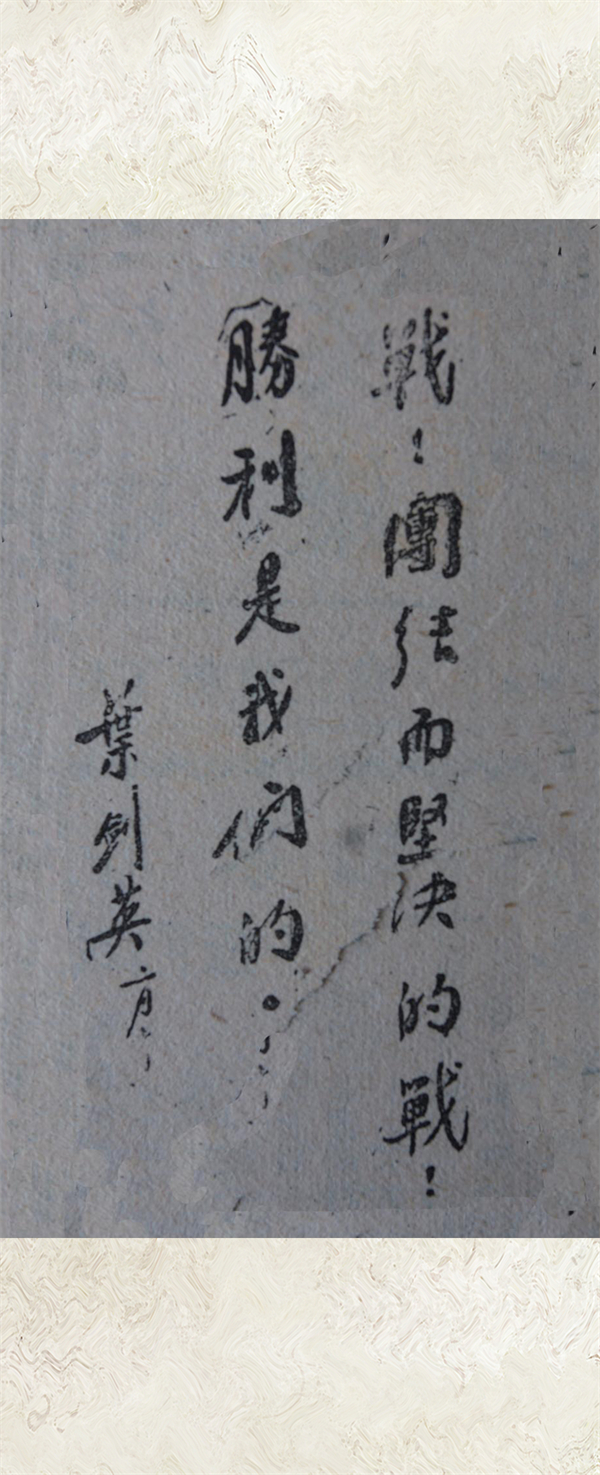 戰！團结而堅决的戰！
勝利是我們的。
葉劍英